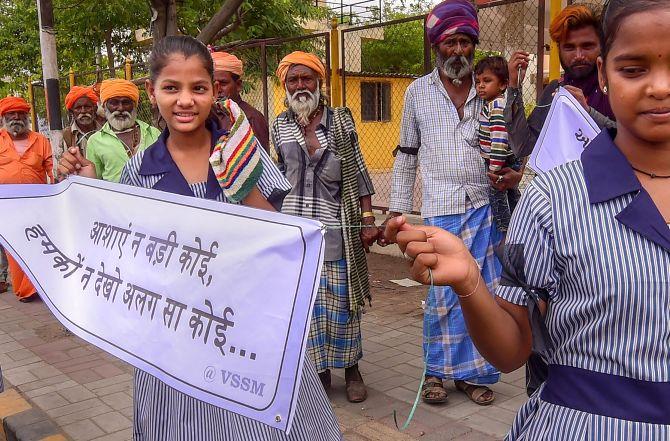 आशाएं न बड़ी कोई,
हमको न देखो अलग सा कोई...
@ VSSM